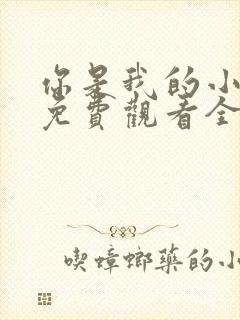 你是我的小
免費觀看全
喫蟑螂藥的小